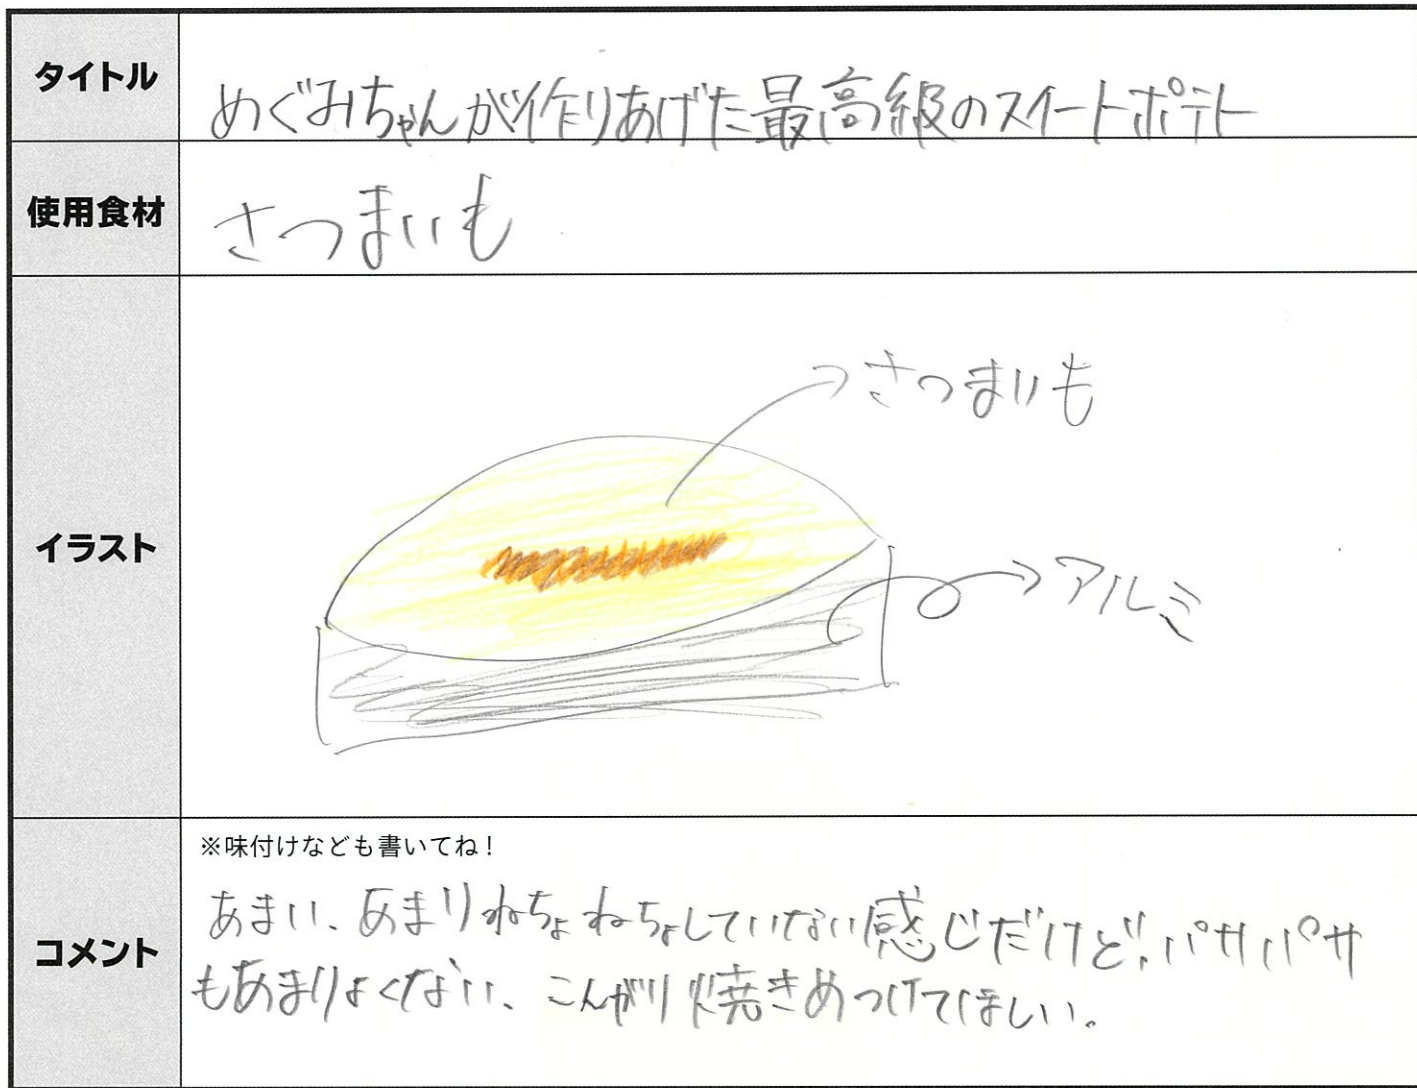 タイトル
めぐみちゃんが作りあげた最高級のスイートポテト
使用食材
さつまいも
イラスト
さつまいも
アルミ
コメント
※味付けなども書いてね！
あまい、あまりねちょねちょしていない感じだけど、パサパサ
もあまりよくない、こんがり焼きめつけてほしい。